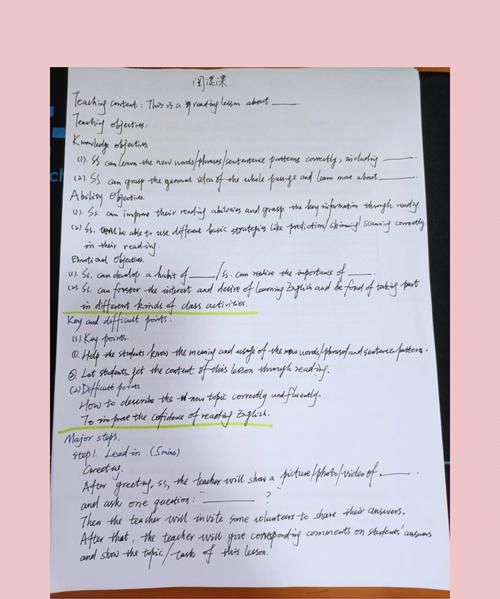 阅读课
Teaching content: This is a reading lesson about ____.
Teaching objectives:
Knowledge objectives
(1). SS can learn the new words/phrases/sentence patterns correctly, including ____.
(2). SS can grasp the general idea of the whole passage and learn more about ____.
Ability Objectives
(1). Ss. can improve their reading abilities and grasp the key information through reading.
(2) Ss. will be able to use different basic strategies like prediction/skimming/scanning correctly
in their reading.
Emotional Objectives.
(1). Ss. can develop a habit of ____/Ss. can realize the importance of ____.
(2). Ss. can forster the interest and desire of learning English and be fond of taking part
in different kinds of class activities.
Key and difficult points:
(1) Key points.
①. Help the students know the meaning and usage of the new words/phrases and sentence/pattern.
② Let students get the content of this lesson through reading.
(2) Difficult points
How to describe the new topic correctly and fluently.
To improt the cofidence of reading English.
Major steps.
Step 1. Lead-in (5 mins)
Greeting.
After greeting, ss, the teacher will show a picture/photo/video of ____.
and ask one question: "____?"
Then the teacher will invite some volunteers to share their answers.
After that, the teacher will give corresponding comments on students' answers
and show the topic/task of this lesson.